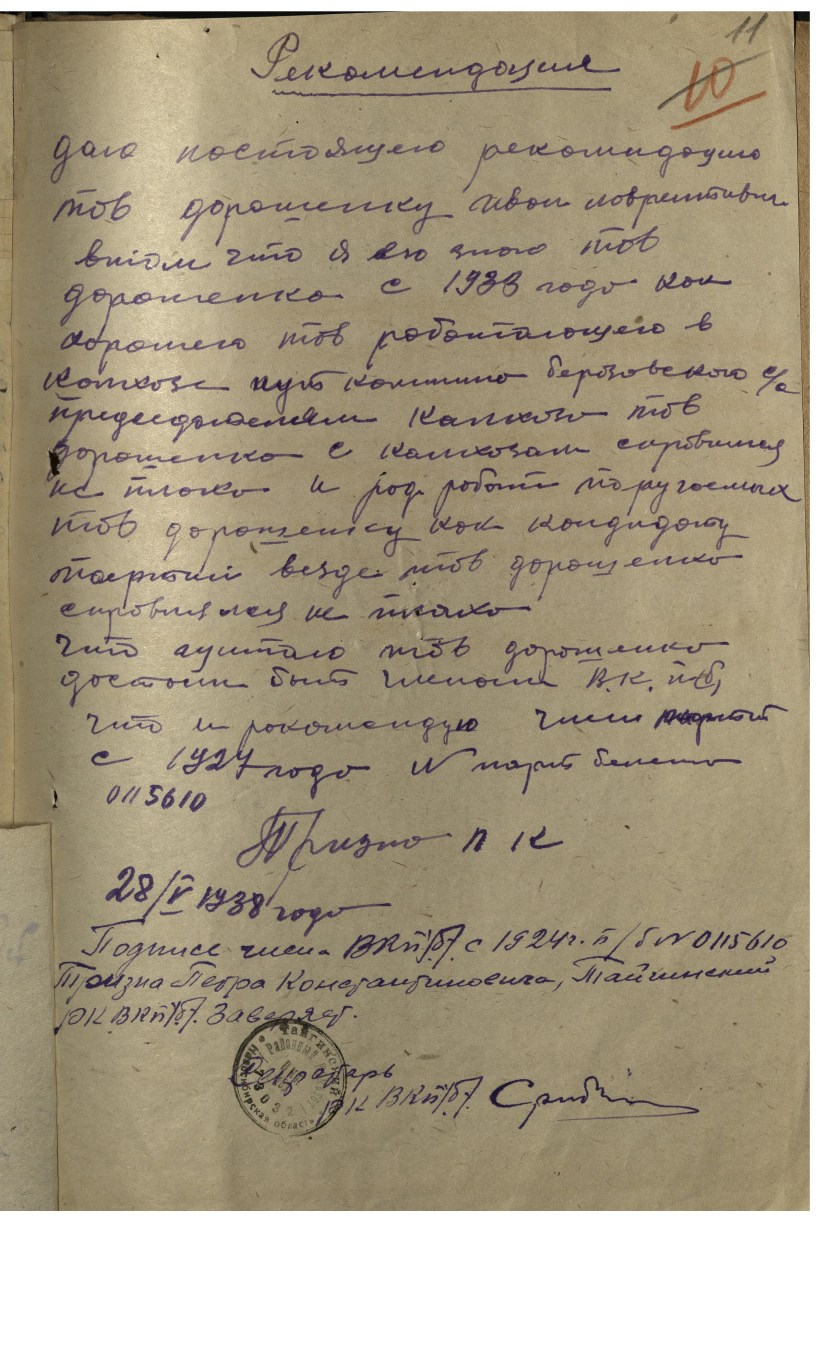 11
10
Рекомендация
даю настоящею рекомидацию
тов дорошенку иван
втом что я ею знаю тов
дорошенко с 1933 года как
хорошего тов работающего в
колхозе путь комунизма берёзовского с/с
председателем Колхоза тов
дорошенко с колхозам справился
не плохо и ряд работ поручаемых
тов дорошенку как кандидату
партии везде тов дорошенко
справлялся не плохо
что щитаю тов дорошенко
достоин быть членом В.К.П(б)
что и рокомандую член партии
с 1924 года N парт билета
0115610
Тризно П К
28/V 1938 года
Подпись члена ВКП/б/. с 1924 г. п/б N 0115610
Тризна Петра Константиновича, Тайгинский
РК ВКП/б/. Заверяет.
Секретарь
РК ВКП/б/.
Тайгинский
Районный
Новосибирская область